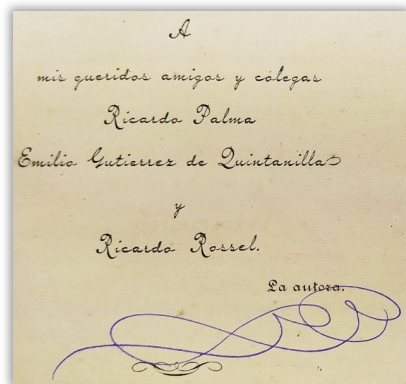 A
mis queridos amigos y colegas
Ricardo Palma
Emilio Gutierrez de Quintanilla
y
Ricardo Rossel.
La autora.